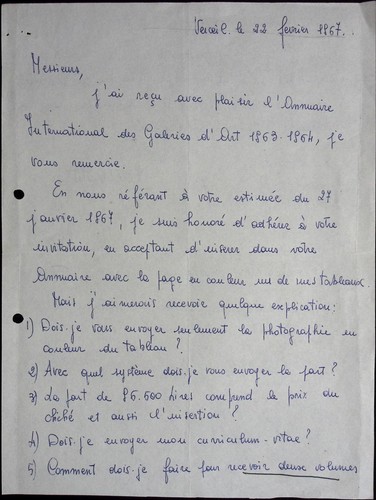 le 22 février 1967.
Messieurs,
j'ai reçu avec plaisir l'Annuaire
International des Galeries d'Art 1963-1964, je
vous remercie.
En nous référant à votre estimée du 27
janvier 1967, je suis honoré d'adhérer à votre
invitation, en acceptant d'insérer dans votre
Annuaire avec la page en couleur un de mes tableaux.
Mais j'aimerois recevoir quelque explication:
1) Dois-je vous envoyer seulement la photographie en
couleur du tableau ?
2) Avec quel système dois-je vous envoyer la part ?
3) La part de 96.500 Lires comprend le prix du
cliché et aussi l'insertion ?
4) Dois-je envoyer mon curriculum-vitae ?
5) Comment dois-je faire pour recevoir deux volumes